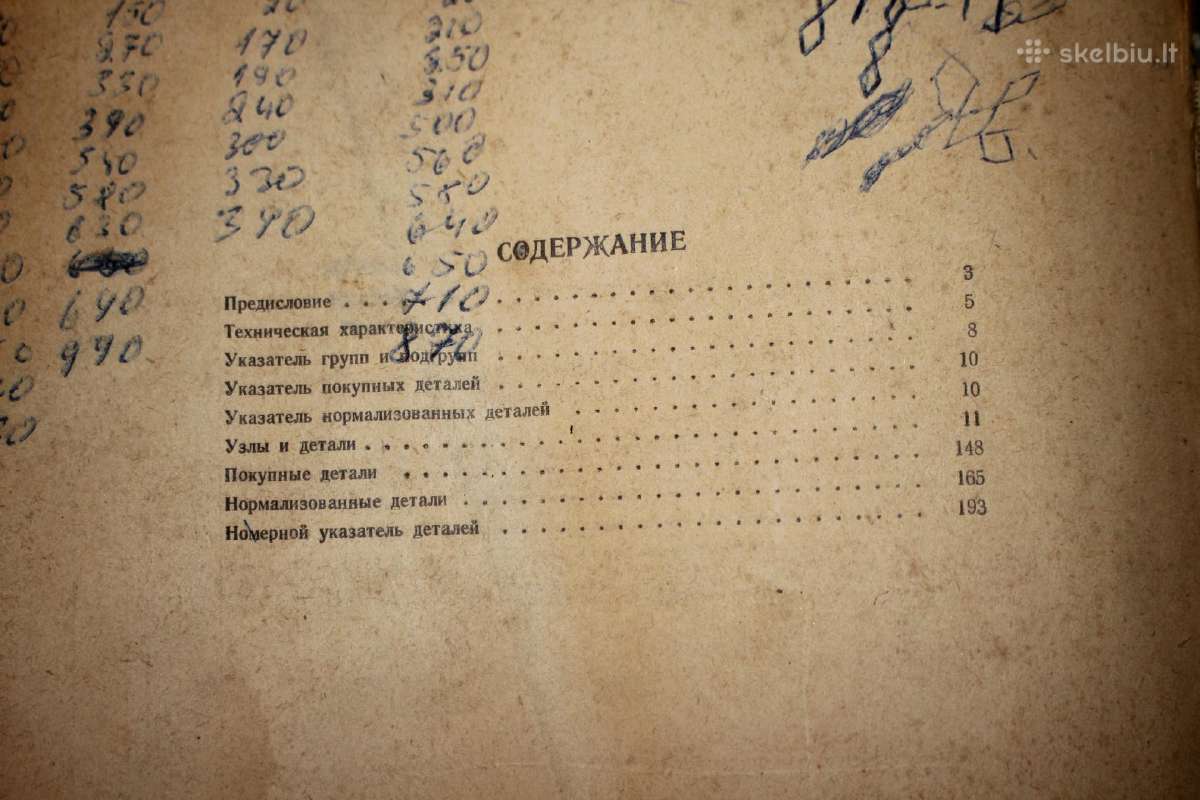 150 20
270 170 210
330 190 250
390 240 310
300 500
580 330 560
630 390 580
640
650
690 710
990 870
skelbiu.lt
СОДЕРЖАНИЕ
Предисловие . . . . . . . . . . . . . . . . . . . . 3
Техническая характеристика . . . . . . . . . . . . . . . 5
Указатель групп и подгрупп . . . . . . . . . . . . . . . 8
Указатель покупных деталей . . . . . . . . . . . . . . . 10
Указатель нормализованных деталей . . . . . . . . . . . . . 10
Узлы и детали . . . . . . . . . . . . . . . . . . . 11
Покупные детали . . . . . . . . . . . . . . . . . . 148
Нормализованные детали . . . . . . . . . . . . . . . . 165
Номерной указатель деталей . . . . . . . . . . . . . . . 193